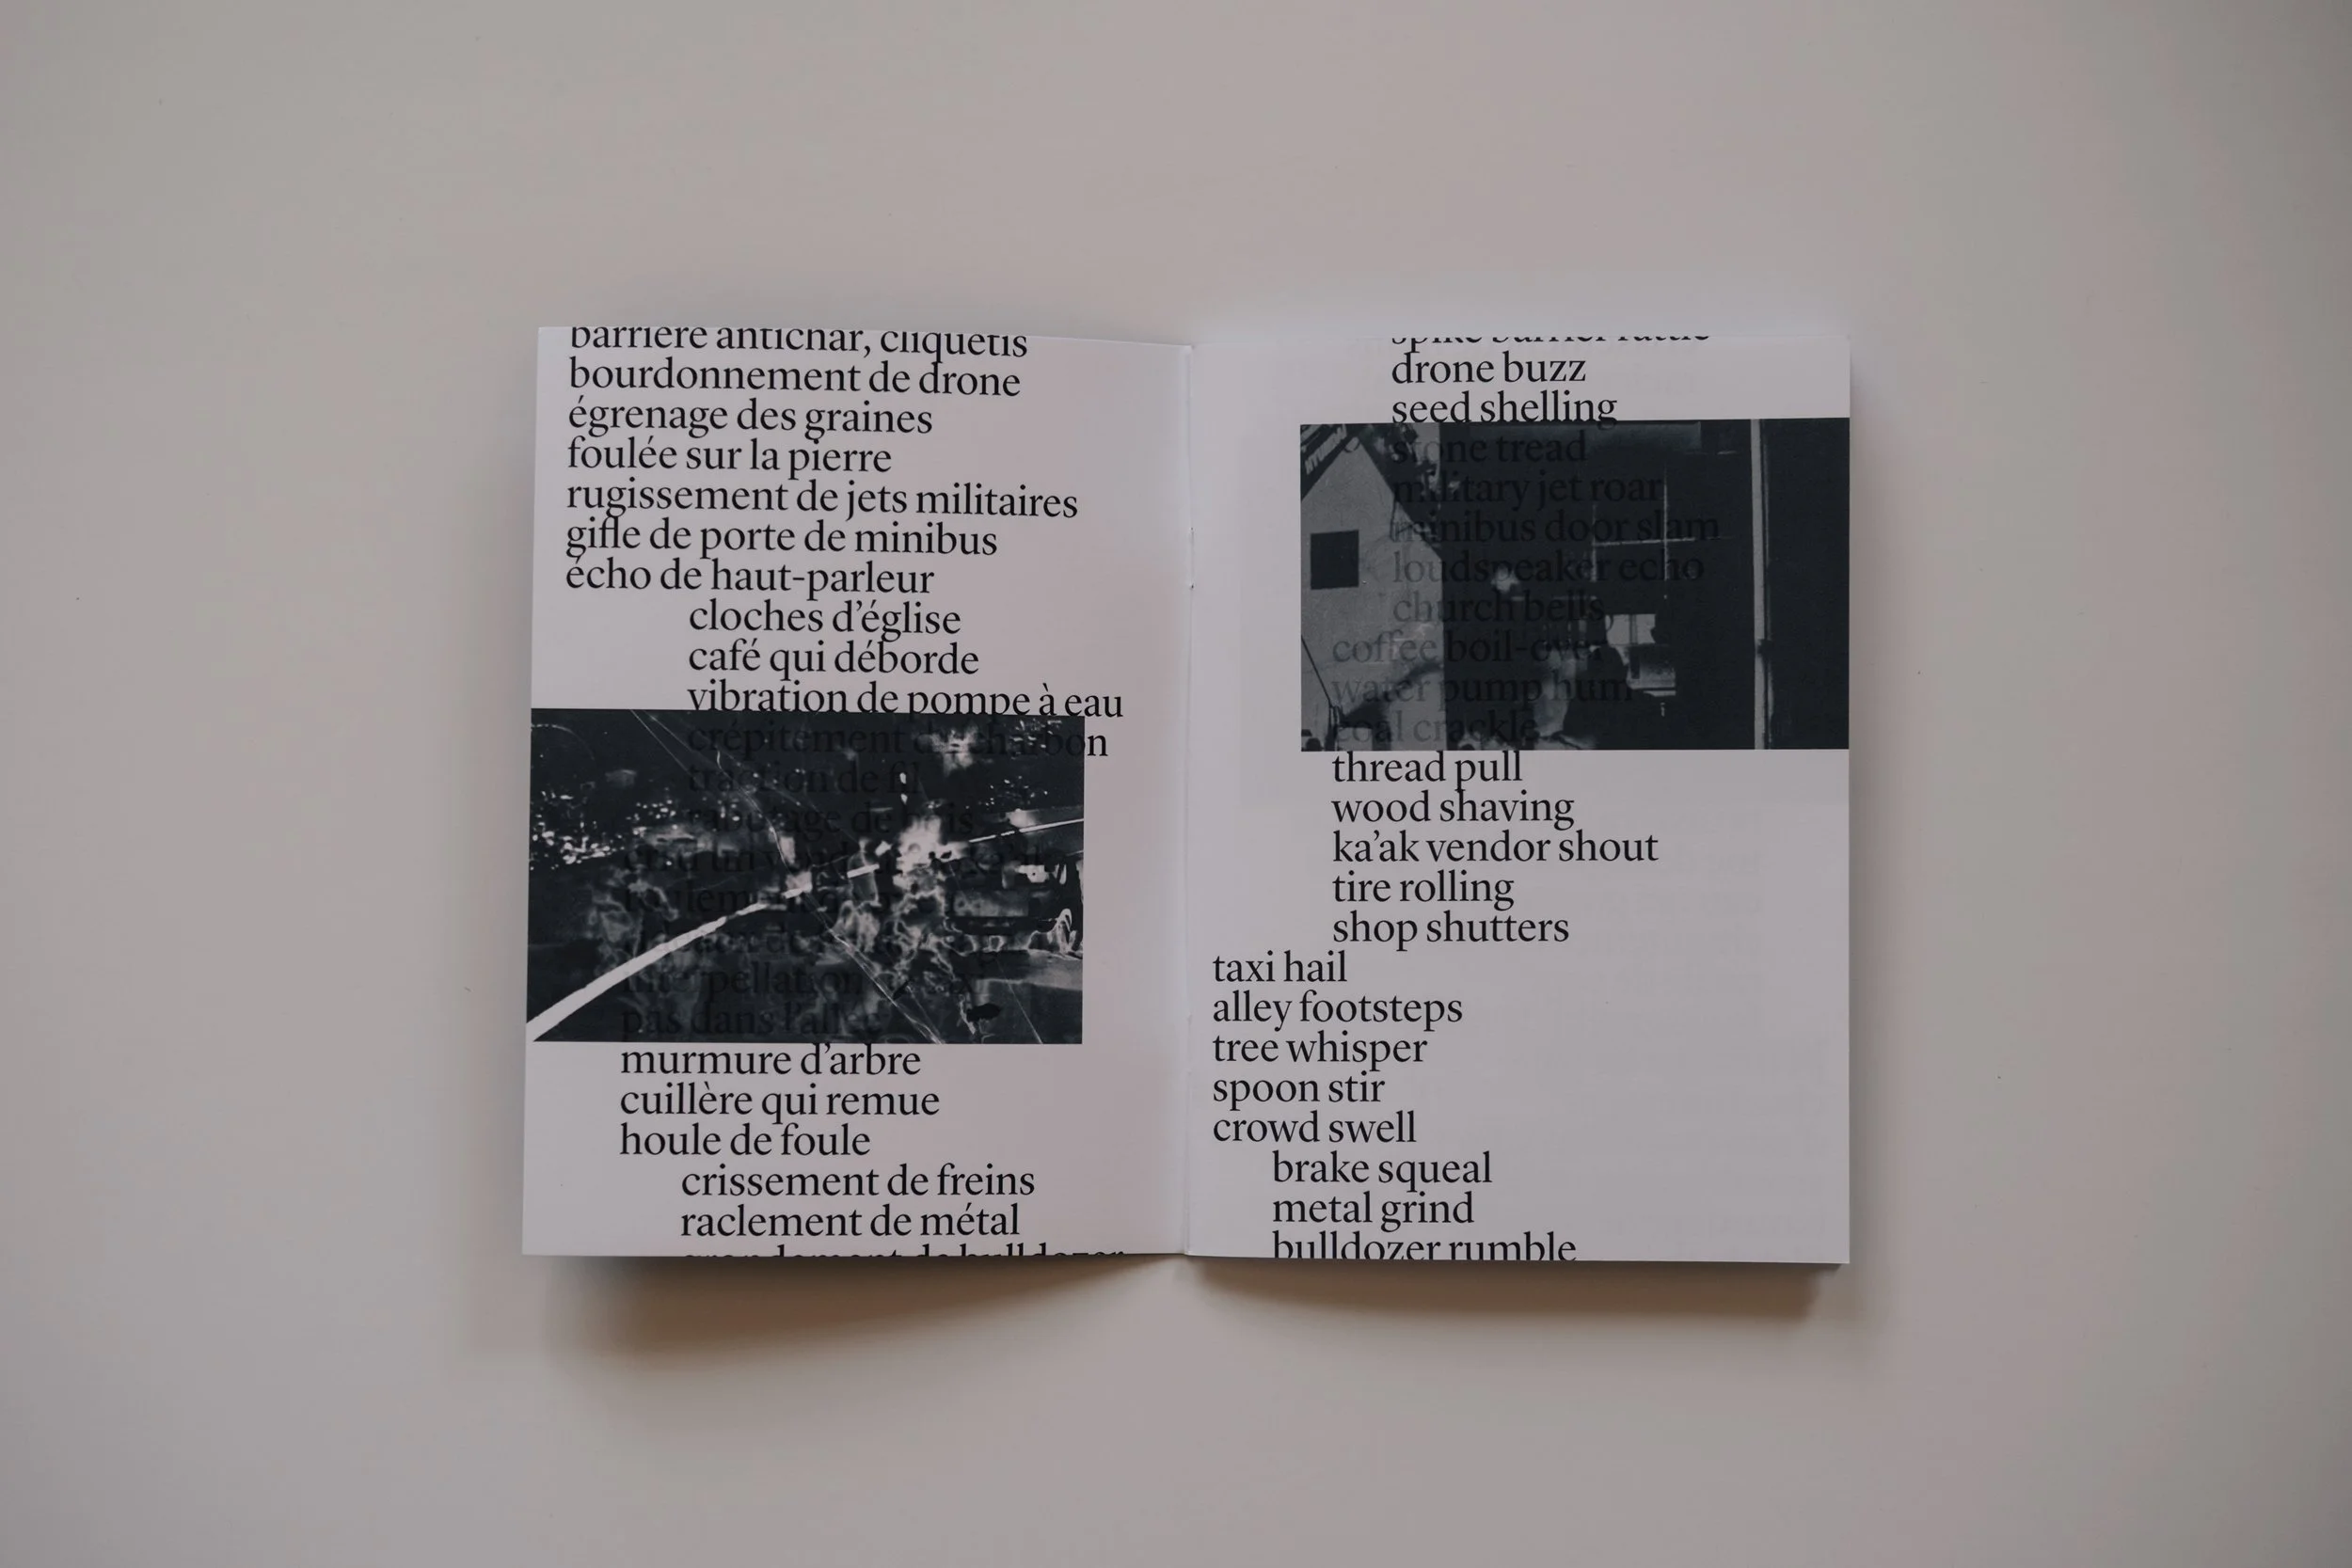 barrière antichar, cliquetis
bourdonnement de drone
égrenage des graines
foulée sur la pierre
rugissement de jets militaires
gifle de porte de minibus
écho de haut-parleur
cloches d’église
café qui déborde
vibration de pompe à eau
crépitement du charbon
traction de fil
rabotage de bois
interpellation
pas dans l’allée
murmure d’arbre
cuillère qui remue
houle de foule
crissement de freins
raclement de métal
grondement de bulldozer
spike barrier rattle
drone buzz
seed shelling
stone tread
military jet roar
minibus door slam
loudspeaker echo
church bells
coffee boil-over
water pump hum
coal crackle
thread pull
wood shaving
ka’ak vendor shout
tire rolling
shop shutters
taxi hail
alley footsteps
tree whisper
spoon stir
crowd swell
brake squeal
metal grind
bulldozer rumble